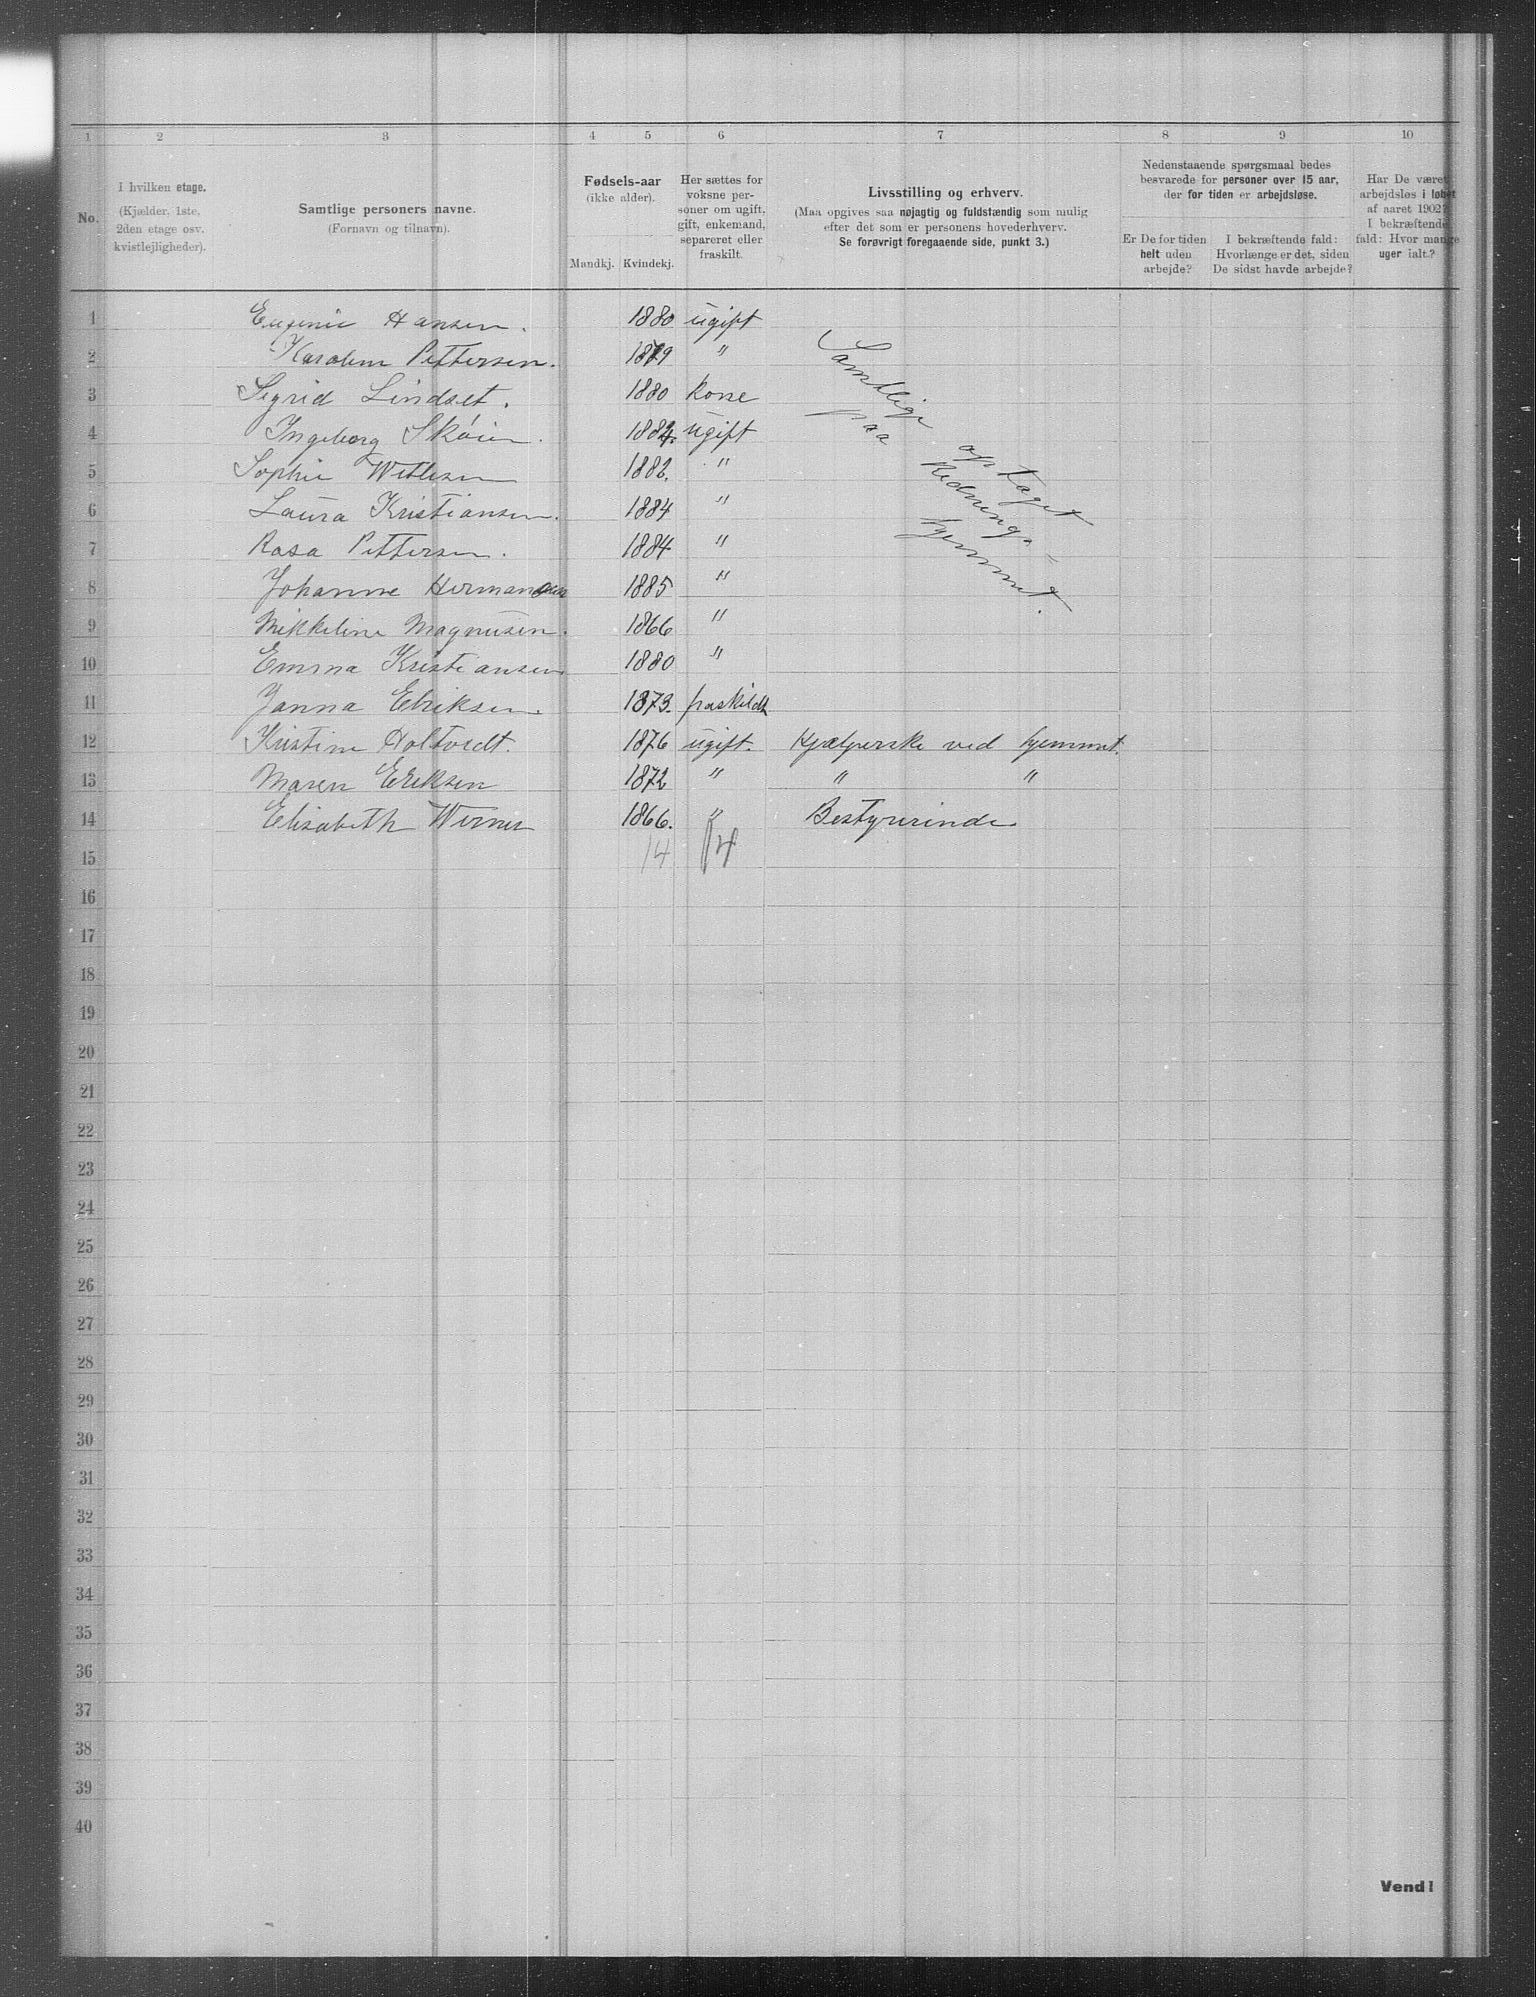 1 2 3 4 5 6 7 8 9 10
No.
I hvilken etage.
(Kjælder, 1ste,
2den etage osv.
kvistlejligheder).
Samtlige personers navne.
(Fornavn og tilnavn).
Fødsels-aar
(ikke alder).
Mandkj. Kvindekj.
Her sættes for
voksne per-
soner om ugift,
gift, enkemand,
separeret eller
fraskilt.
Livsstilling og erhverv.
(Maa opgives saa nøjagtig og fuldstændig som mulig
efter det som er personens hovederhverv.
Se forøvrigt foregaaende side, punkt 3.)
Nedenstaaende spørgsmaal bedes
besvarede for personer over 15 aar,
der for tiden er arbejdsløse.
Er De for tiden
helt uden
arbejde?
I bekræftende fald:
Hvorlænge er det, siden
De sidst havde arbejde?
Har De været
arbejdsløs i løbet
af aaret 1902?
I bekræftende
fald: Hvor mange
uger ialt.?
1 Eugenie Hansen. 1880 ugift
2 Karoline Pettersen. 1879 "
3 Sigrid Lindset. 1880 kone
4 Ingeborg Skøien. 1884. ugift
5 Sophie Wetlesen 1882. "
6 Laura Kristiansen. 1884 "
7 Rosa Pettersen. 1884 "
8 Johanne Hermansen 1885 "
9 Mikkeline Magnusen. 1866 "
10 Emma Kristiansen 1880 "
Samtlige optaget
paa Rednings-
hjemmet.
11 Janna Eriksen. 1873. fraskildt
12 Kristine Holtvedt. 1876 ugift. Hjælperske ved hjemmet.
13 Maren Eriksen 1872 " " "
14 Elisabeth Werner 1866. " Bestyrerinde
15 14 14
16
17
18
19
20
21
22
23
24
25
26
27
28
29
30
31
32
33
34
35
36
37
38
39
40
Vend!